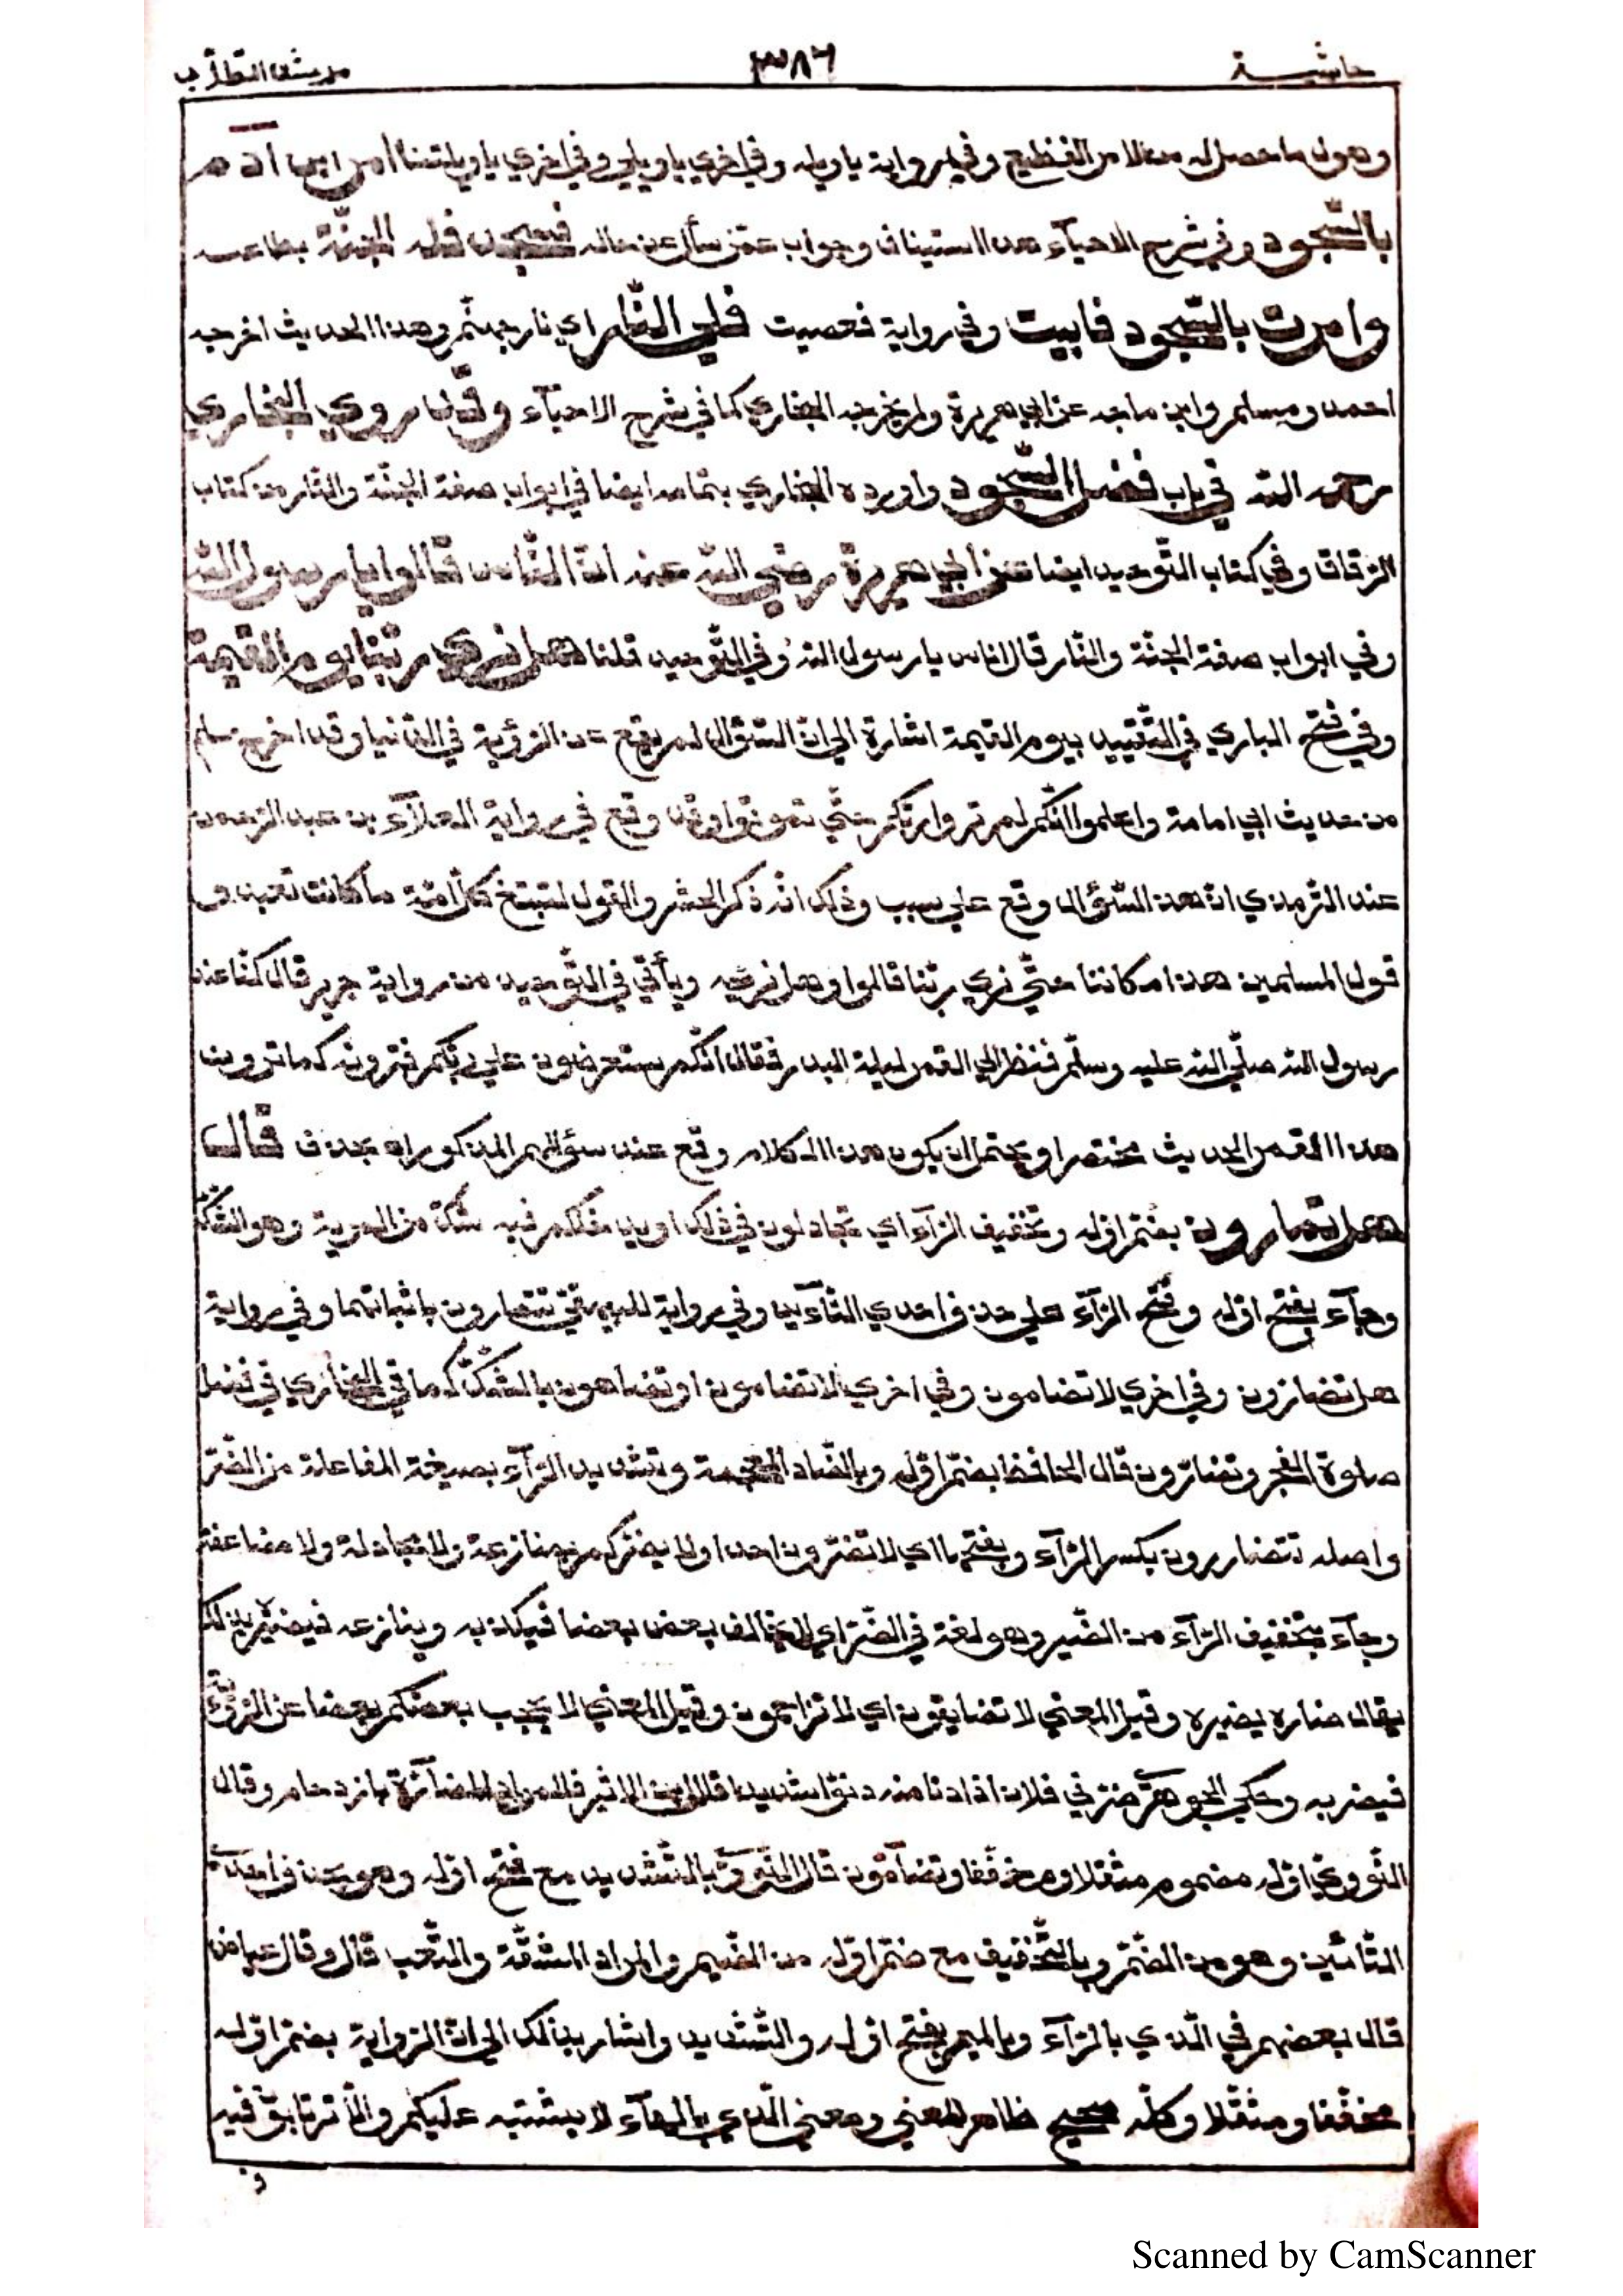 حاشية ٣٨٦ مرشد الطلاب
وهول ما حصل له من الامر الفظيع وفي رواية يا ويله وفي اخري يا ويلي وفي اخري يا ويلتنا امر ابن اٰدم
بالسّجود وفي شرح الاحيآء هذا استيناف وجواب عمّن سأل عن حاله فسجد فله الجنّة بطاعته
وامرت بالسّجود فابيت وفي رواية فعصيت فلي النّار اي نار جهنّم وهذا الحديث اخرجه
احمد ومسلم وابن ماجه عن ابي هريرة ولم يخرجه البخاري كما في شرح الاحيآء وقد روي البخاري
رحمه الله في باب فضل السّجود واورده البخاري بتمامه ايضا في ابواب صفة الجنّة والنّار من كتاب
الرّقاق وفي كتاب التّوحيد ايضا عن ابي هريرة رضي الله عنه انّ النّاس قالوا يا رسول الله
وفي ابواب صفة الجنّة والنّار قال اناس يا رسول الله وفي التّوحيد قلنا هل نري ربّنا يوم القيمة
وفي فتح الباري في التّقييد بيوم القيمة اشارة الي انّ السّؤال لم يقع عن الرّؤية في الدّنيا وقد اخرج مسلم
من حديث ابي امامة واعلموا انّكم لم تروا ربّكم حتّي تموتوا وقد وقع في رواية العلآء بن عبد الرّحمن
عند التّرمذي انّ هذا السّؤال وقع علي سبب وذلك انّه ذكر الحشر والقول لتتبع كلّ امّة ما كانت تعبد و
قول المسلمين هذا مكاننا حتّي نري ربّنا قالوا وهل نريه ويأتي في التّوحيد من رواية جرير قال كنّا عند
رسول الله صلّي الله عليه وسلّم فنظر الي القمر ليلة البدر فقال انّكم ستعرضون علي ربّكم فترونه كما ترون
هذا القمر الحديث مختصرا ويحتمل ان يكون هذا الكلام وقع عند سؤالهم المذكور اه بحذف قال
هل تمارون بضمّ اوّله وتخفيف الرّآء اي تجادلون في ذلك او يدخلكم فيه شكّ من المرية وهو الشّكّ
وجآء بفتح اوّله وفتح الرّآء علي حذف احدي التّآءين وفي رواية للبيهقيّ تتمارون باثباتهما وفي رواية
هل تضارون وفي اخري لا تضامون وفي اخري لا تضامون او تضاهون بالشّكّ كما في البخاري في فضل
صلوة الفجر وتضارّون قال الحافظ بضمّ اوّله وبالضّاد المعجمة وتشديد الرّآء بصيغة المفاعلة من الضّرّ
واصله تتضاررون بكسر الرّآء وبفتحها اي لا تضرّون احدا ولا يضرّكم بمنازعة ولا مجادلة ولا مضايقة
وجآء بتخفيف الرّآء من الضّير وهو لغة في الضّرّ اي لا يخالف بعض بعضا فيكذبه وينازعه فيضيّره بذلك
يقال ضاره يضيره وقيل المعني لا تضايقون اي لا تزاحمون وقيل المعني لا يحجب بعضكم بعضا عن الرّؤية
فيضر به وحكي الجوهريّ ضرّني فلان اذا دنا منه دنوّا شديدا قال ابن الاثير فالمراد المضآرّة بازدحام وقال
النّووي اوّله مضموم مثقلا ومخفّفا وتضآمّون قال النّوويّ بالتّشديد مع فتح اوّله وهو بحذف احدي
التّائين وهو من الضّمّ وبالتّخفيف مع ضمّ اوّله من الضّيم والمراد المشقّة والتّعب قال وقال عياض
قال بعضهم في الّذي بالرّآء وبالميم بفتح اوّله والتّشديد واشار بذلك الي انّ الرّواية بضمّ اوّله
مخفّفا ومثقّلا وكلّه صحيح ظاهر المعني ومعني الّذي بالهآء لا يشتبه عليكم ولا ترتابون فيه
Scanned by CamScanner